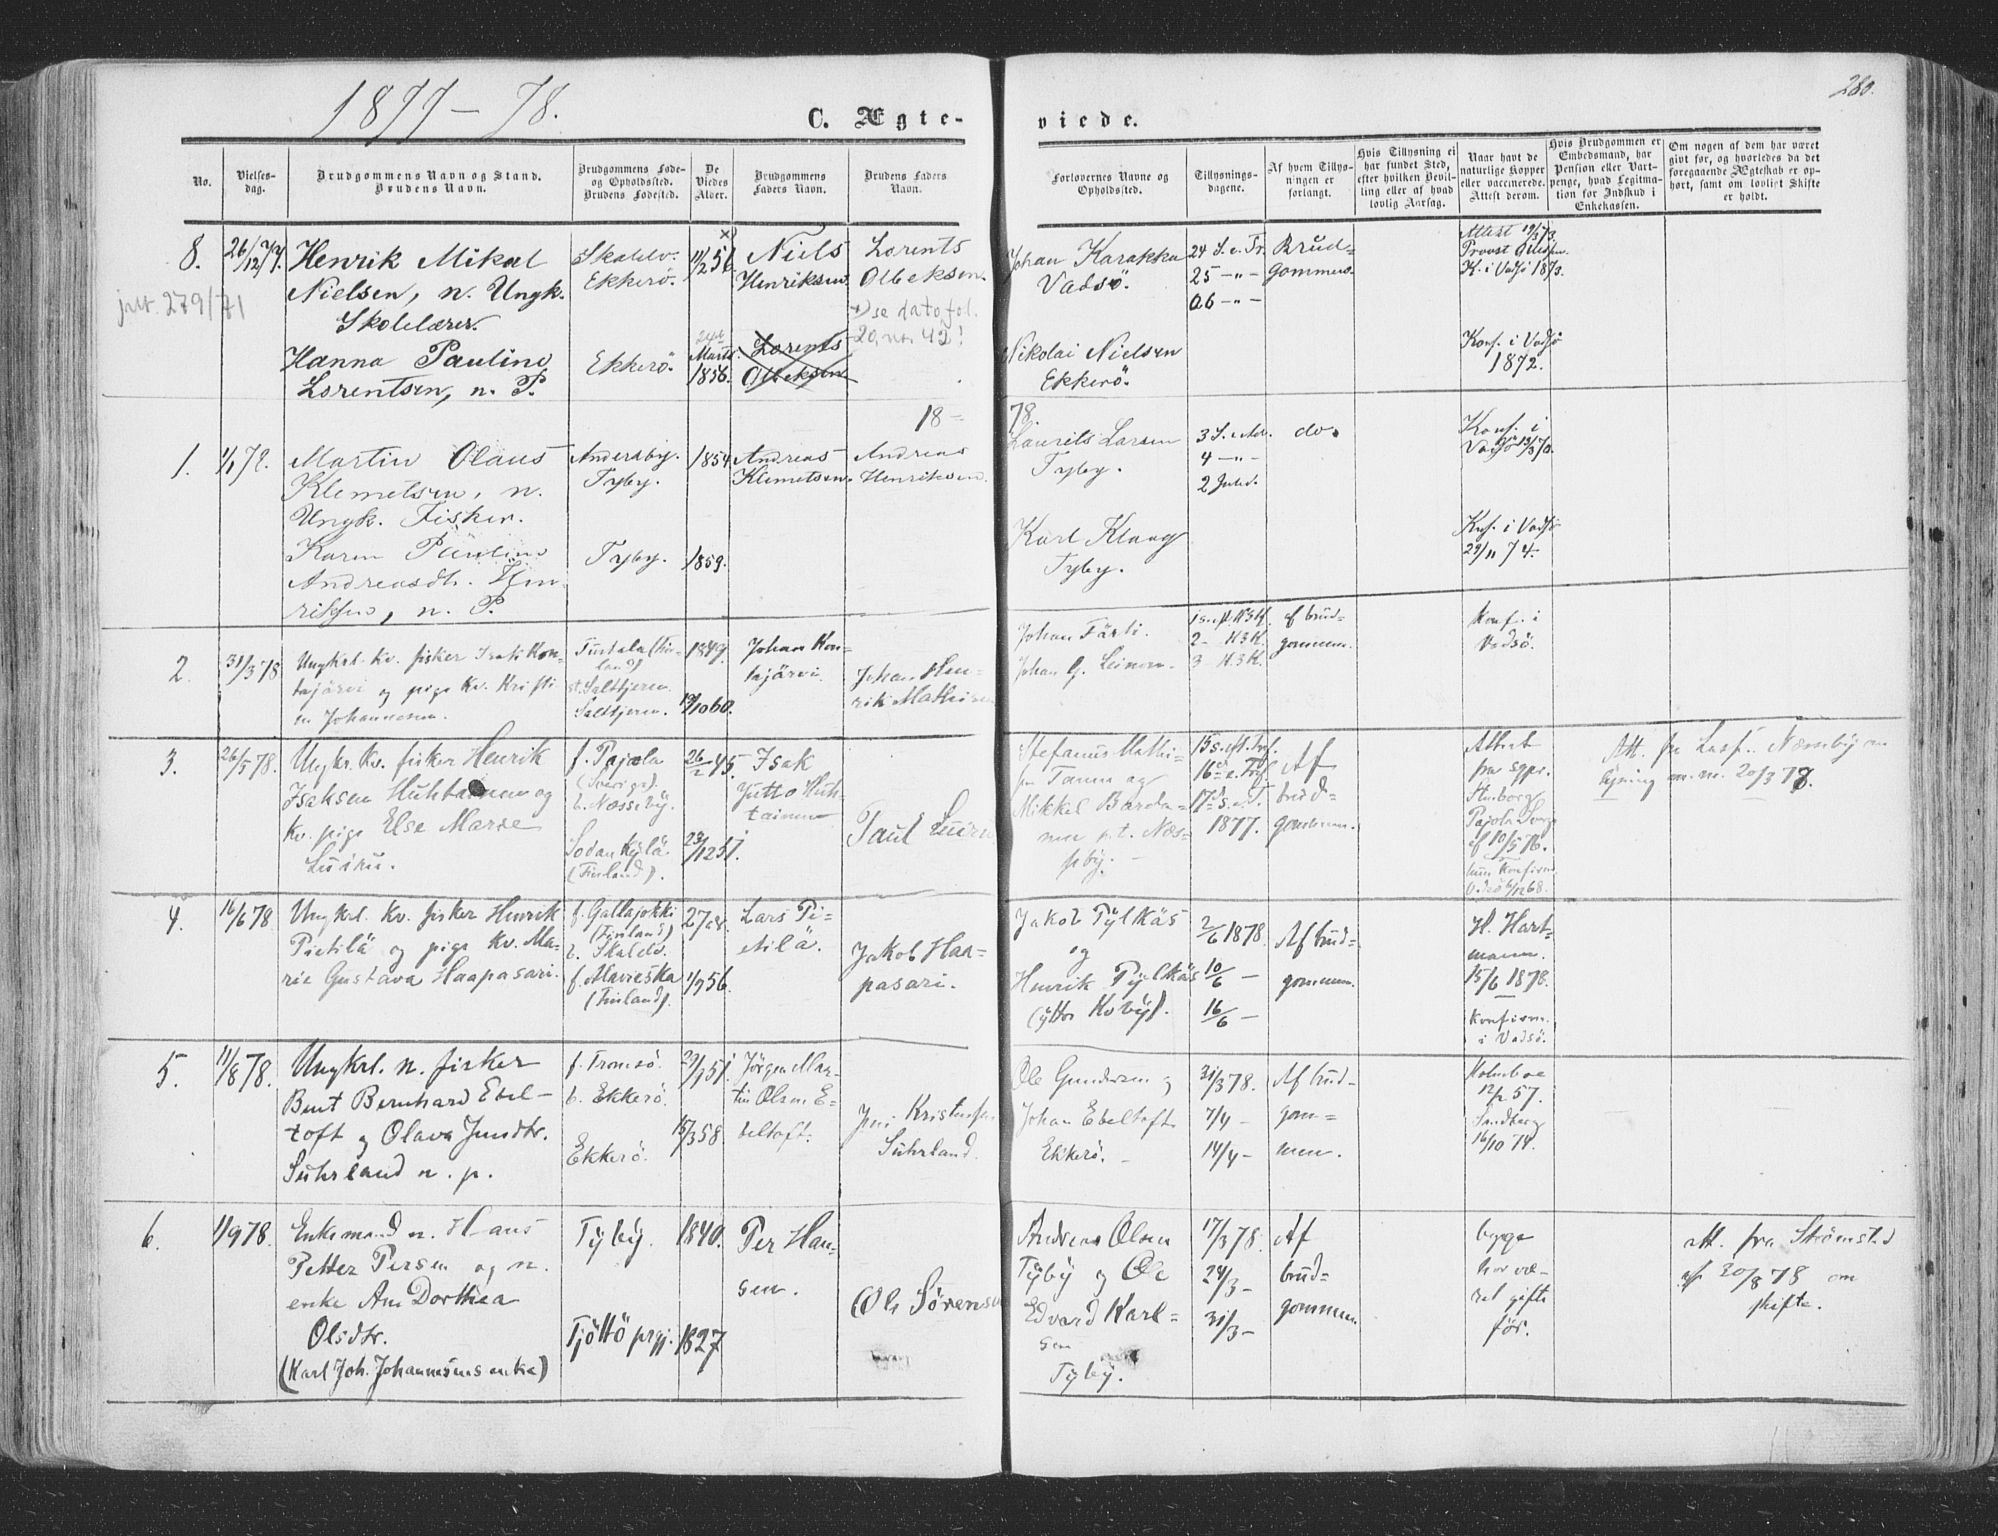 1877-78.
C. Ægte-
viede.
280.
No.
Vielses-
dag.
Brudgommens Navn og Stand.
Brudens Navn.
Brudgommens Føde-
og Opholdssted.
Brudens Fødested.
De
Viedes
Alder.
Brudgommens
Faders Navn.
Brudens Faders
Navn.
Forlovernes Navne og
Opholdssted.
Tillysnings-
dagene.
Af hvem Tillys-
ningen er
forlangt.
Hvis Tillysning ei
har fundet Sted,
efter hvilken Bevil-
ling eller af hvad
lovlig Aarsag.
Naar havt de
naturlige Kopper
eller vaccinerede.
Attest derom.
Hvis Brudgommen er
Embedsmand, har
Pension eller Vart-
penge, hvad Legitima-
tion for Indskud i
Enkekassen.
Om nogen af dem har været
gift før, og hvorledes da det
foregaaende Ægteskab er op-
hørt, samt om lovligt Skifte
er holdt.
8.
26/12 77.
Henrik Mikal
Nielsen, n. Ungk.
Skolelærer.
Hanna Pauline
Lorentsen, n. P.
Skalelv.
Ekkerö.
Ekkerö.
11/2 56
Marts
1856.
Niels
Henriksen
Lorents
Olbeksen
Lorents
Olbeksen.
x) se dato fol.
20, no. 42!
Johan Karakka
Vadsö.
Nikolai Nielsen
Ekkerö.
24 S. e. Tr.
25 -"-
26 -"-
Brud-
gommen.
Attest 19/3 73
Provst
K. i Vadsö 1873.
Konf. i Vadsö
1872.
279/71
18-
78.
1.
1/1 78.
Martin Olaus
Klemetsen, n.
Ungk. Fisker.
Karen Pauline
Andreasdt. Hen-
riksen, n. P.
Andersby.
Tyby.
Tyby.
1854
1859.
Andreas
Klemetsen.
Andreas
Henriksen.
Laurits Larsen
Tyby.
Karl Klaag
Tyby.
3 S. i Adv.
4 -"-
2 Juled.
do.
Konf. i
Vadsö
Knf. i Vadsö
29/11 74.
2.
31/3 78
Ungkrl. kv. fisker Isak Kon-
tajärvi og pige kv. Kristi
n Johannesen.
(Fin-
land)
st. Saltjern.
Saltjern.
1849.
19/10 60.
Johan Kon-
tajärvi
Johan Hen-
rik Mathisen
Johan Färli.
Johan G. Leinon.
2 - H3K.
3 - H3K.
af brud-
gommen.
Konf. i
Vadsö.
3.
26/5 78.
Ungkr. kv. fisker Henrik
Isaksen Huhtainen og
kv. pige Else Marie
Luiru.
f. Pajala
(Sverige).
b. Næsseby.
Sodankylä
(Finland).
26/2 45.
23/12 51.
Isak
Jutto Huh-
tainen
Paul Luiru
Stefanus Mathi-
sen Tanen og
Mikkel Banda-
nen p.t. Næs-
seby.
15 s. eft. tref.
16 d. e. Tref.
17 d. s. e. T.
1877.
Af
brud-
gommen.
Attest
fra sgpr.
Stenborg
Pajala Sverg.
af 10/5 76.
hun konfirm.
Vadsö 6/12 68.
Att. fra Lensf. i Næsseby om
lysning m. m. 20/3 78.
4.
16/6 78
Ungkrl. kv. fisker Henrik
Pietilä og pige kv. Ma-
rie Gustava Haapasari.
f. Gallajokki
(Finland)
b. Skalelv.
f. Alavieska
(Finland).
27 aar
1/9 56.
Lars Pi-
etilä.
Jakob Haa-
pasari.
Jakob Pylkäs
og
Henrik Pylkäs
(ytter Kiby).
2/6 1878.
10/6 -
16/6 -
Af brud-
gommen.
H. Hart-
mann.
15/6 1878.
Konfirm.
i Vadsö.
5.
11/8 78.
Ungkrl. n. fisker
Bent Bernhard Ebel-
toft og Olava Jensdtr.
Suhrland n. p.
f. Tromsö.
b. Ekkerö.
Ekkerö.
29/1 51.
15/3 58.
Jörgen Mar-
tin Olsen E-
beltoft.
Jens Kristensen
Suhrland.
Ole Gundersen og
Johan Ebeltoft
Ekkerö.
31/3 78.
7/4 -
14/4 -
Af brud-
gom-
men.
Holmboe
12/2 57.
Sandberg
16/10 74.
6.
1/9 78.
Enkemand n. Hans
Petter Persen og n.
enke Ane Dorthea
Olsdtr.
(Karl Joh. Johannesens enke)
Tyby.
Tjöttö prgj.
1840.
1827
Per Han-
sen.
Ole Sörensen
Andreas Olsen
Tyby og Ole
Edvard Karl-
sen
Tyby.
17/3 78.
24/3 -
31/3 -
Af
brud-
gommen.
begge
har væ-
ret gifte
för.
att. fra Strömsted
af 20/8 78 om
skifte.